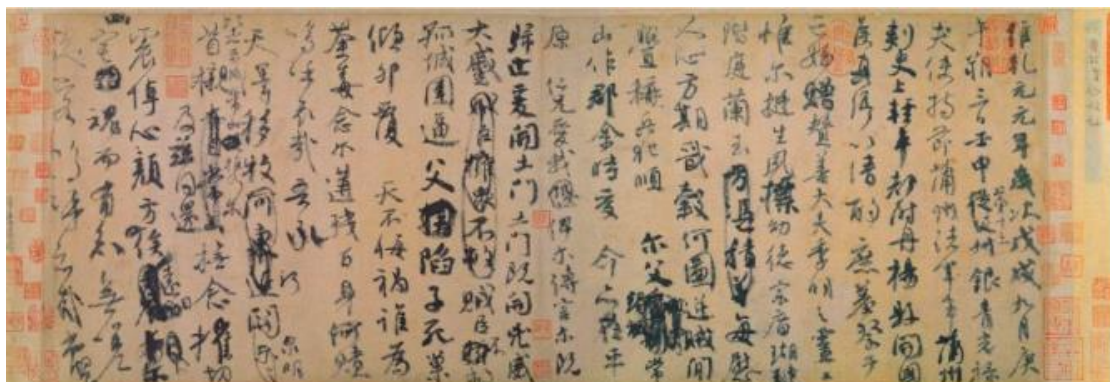 維乾元元年歲次戊戌九月庚
午朔三日壬申第十三從父銀青光祿
夫使持節蒲州諸軍事蒲州
刺史上輕車都尉丹楊縣開國
侯真卿以清酌庶羞祭于
亡姪贈贊善大夫季明之靈
惟爾挺生夙標幼德宗廟瑚璉
階庭蘭玉方憑積善每慰
人心方期戩穀何圖逆賊閒
釁稱兵犯順爾父常
山作郡余時受命亦在平
原仁兄愛我俾爾傳言爾既
歸止爰開土門土門既開凶威
大蹙賊臣不救
孤城圍逼父陷子死巢
傾卵覆天不悔禍誰為
荼毒念爾遘殘百身何贖
嗚呼哀哉吾承
天澤移牧河關泉明
首櫬及茲同還撫念摧切
震悼心顏方俟遠日
宅魂而有知無嗟
久客嗚呼哀哉尚饗